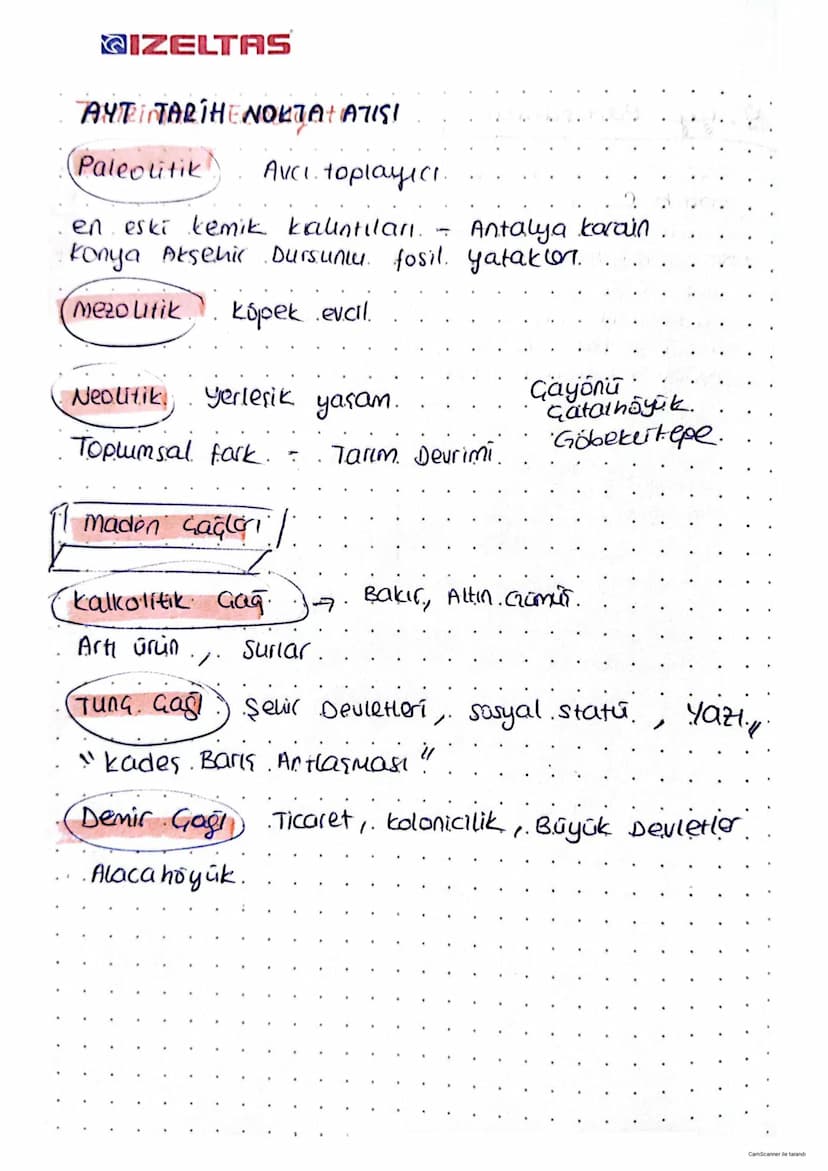 İZELTAŞ
AYT TARİH NOKTA ATIŞI
Paleolitik Avcı toplayıcı.
en eski kemik kalıntıları - Antalya karain
Konya Akşehir Dursunlu fosil yatakları.
Mezolitik Köpek evcil.
Neolitik Yerleşik yaşam. Çayönü
Çatalhöyük.
Toplumsal fark - Tarım Devrimi. Göbeklitepe.
Maden Çağları
Kalkolitik Çağ → Bakır, Altın Gümüş.
Artı ürün, surlar.
Tunç Çağı Şehir Devletleri, sosyal statü, Yazı,,
"Kadeş Barış Antlaşması"
Demir Çağı Ticaret, kolonicilik, Büyük Devletler
Alacahöyük.
CamScanner ile tarandı